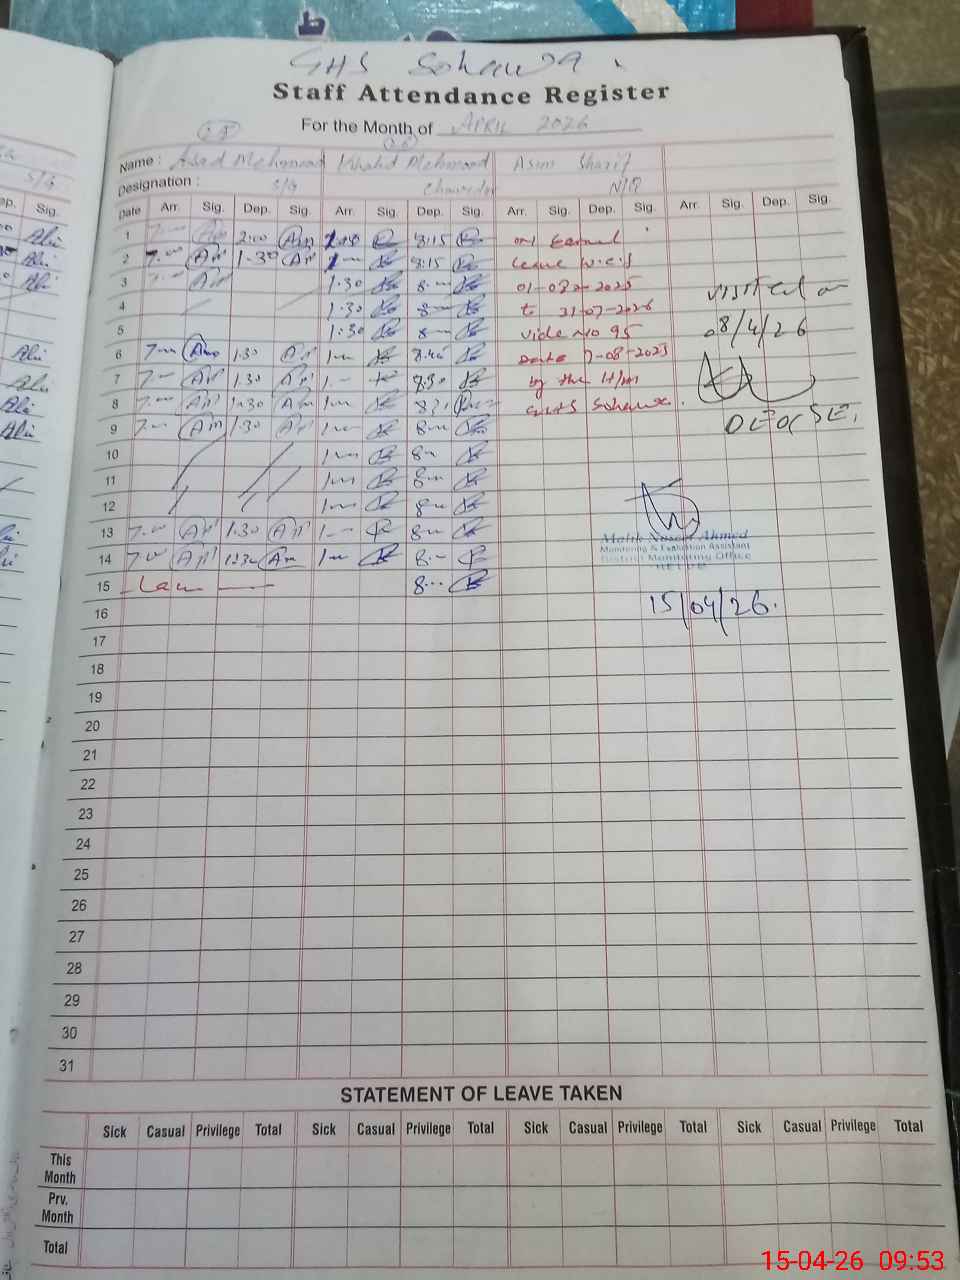 GHS Sohawa
Staff Attendance Register
For the Month of APRIL 2026
Name : Asad Mehmood Khalid Mehmood Asim Sharif
Designation : S/G Chowkidar N/Q
Date Arr. Sig. Dep. Sig. Arr. Sig. Dep. Sig. Arr. Sig. Dep. Sig. Arr. Sig. Dep. Sig.
1 7:00 2:00 8:15 on Earned
2 7:00 1:30 8:15 Leave w.e.f
3 7:00 1:30 8:00 01-08-2025
4 1:30 8:00 to 31-07-2026
5 1:30 8:00 vide no 95
6 7:00 1:30 1:00 8:45 Date
7 7:00 1:30 1:00 8:30 by the H/m
8 7:00 1:30 1:00 GHS Sohawa.
9 7:00 1:30 1:00 8:00
10 1:00 8:00
11 1:00 8:00
12 1:00 8:00
13 7:00 1:30 1:00 8:00
14 7:00 1:30 1:00 8:00
15 Leave 8:00
16
17
18
19
20
21
22
23
24
25
26
27
28
29
30
31
visited on
08/4/26
DEO(SE)
Malik Naseer Ahmed
Monitoring & Evaluation Assistant
District Monitoring Office
JHELUM
15/04/26.
STATEMENT OF LEAVE TAKEN
Sick Casual Privilege Total Sick Casual Privilege Total Sick Casual Privilege Total Sick Casual Privilege Total
This Month
Prv. Month
Total
15-04-26 09:53